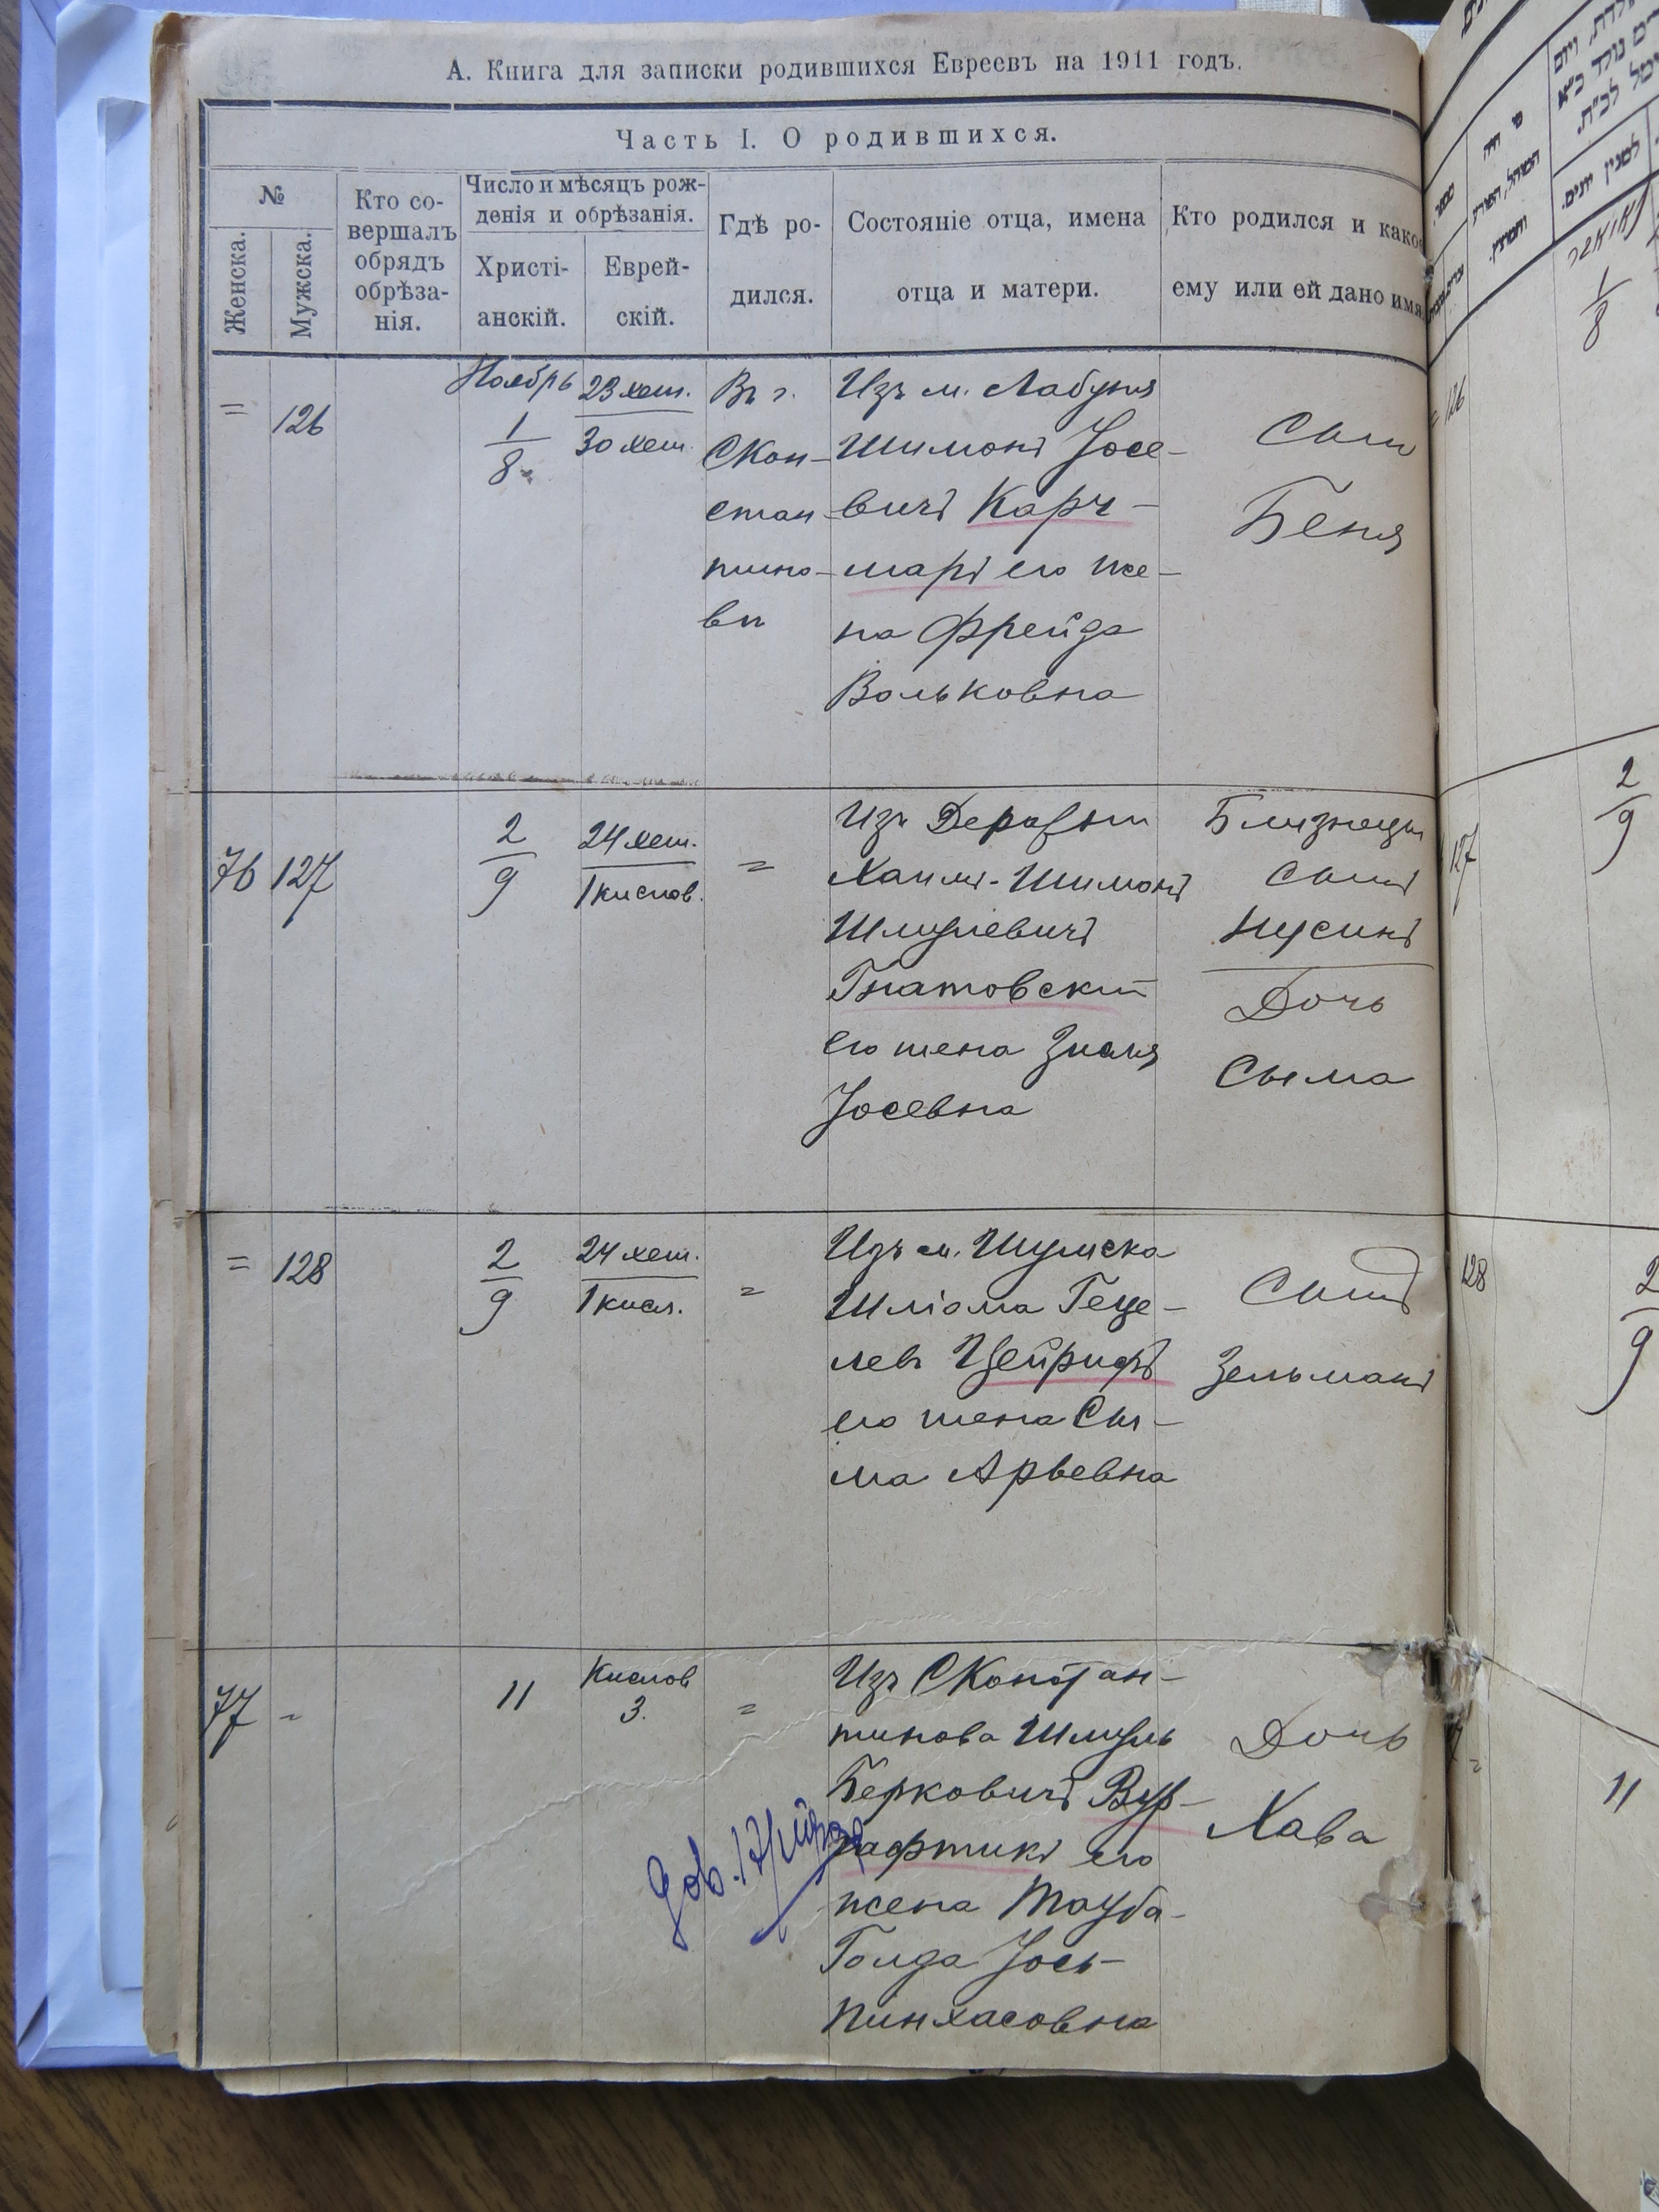 А. Книга для записки родившихся Евреевъ на 1911 годъ.
Часть I. О родившихся.
№
Женска.
Мужска.
Кто со-
вершалъ
обрядъ
обрѣза-
нія.
Число и мѣсяцъ рож-
денія и обрѣзанія.
Христі-
анскій.
Еврей-
скій.
Гдѣ ро-
дился.
Состояніе отца, имена
отца и матери.
Кто родился и какое
ему или ей дано имя
=
126
Ноябрь
1
8
23 хеш.
30 хеш.
Въ г.
СКон-
стан-
тино-
вѣ
Изъ м. Лабуня
Шимонъ Іосе-
вичъ Карч-
маръ его же-
на Фрейда
Вольковна
Сынъ
Беня
76
127
2
9
24 хеш.
1 кислов.
=
Изъ
Хаимъ-Шимонъ
Шмулевичъ
Гнатовский
его жена
Іосевна
Близнецы
Сынъ
Нусинъ
Дочь
Сыма
=
128
2
9
24 хеш.
1 кисл.
=
Изъ м. Шумска
Шліома Геце-
левъ Цейрифъ
его жена Сы-
ма Арьевна
Сынъ
Зельманъ
77
-
11
Кислов
3.
=
Изъ СКонстан-
тинова Шмуль
Берковичъ Вур-
гафтикъ его
жена Тауба-
Голда Іось-
Пинхасовна
Дочь
Хава
дов.
126
1
8
127
2
9
128
2
9
11